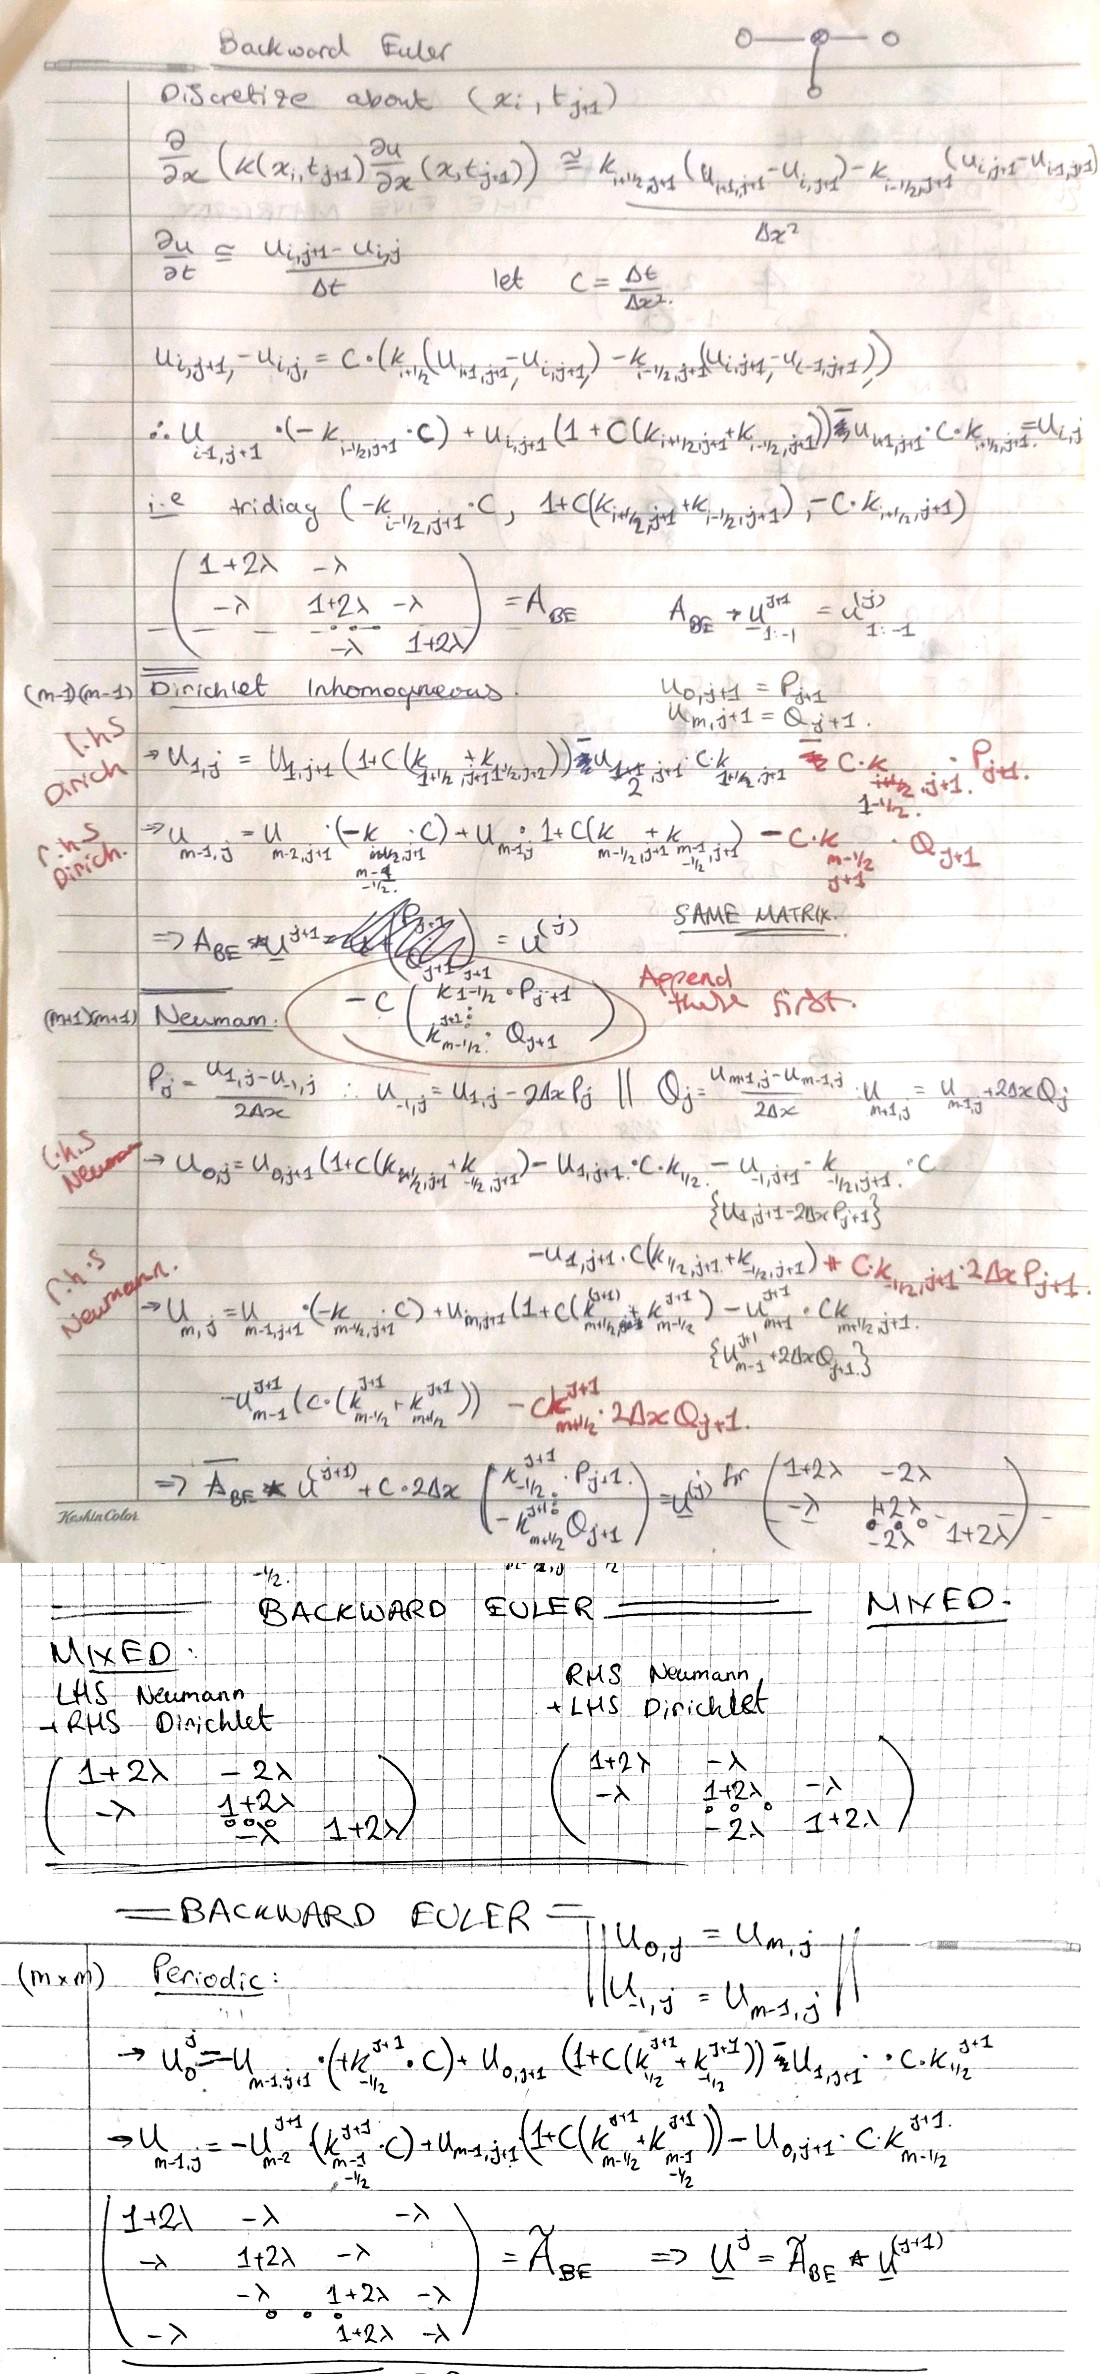 Backward Euler
Discretize about (xi, tj+1)
∂/∂x (k(xi, tj+1) ∂u/∂x (x, tj+1)) ≅ ki+1/2,j+1 (ui+1,j+1 - ui,j+1) - ki-1/2,j+1 (ui,j+1 - ui-1,j+1) / Δx²
∂u/∂t ≅ ui,j+1 - ui,j / Δt let C = Δt/Δx².
ui,j+1, - ui,j, = C·(ki+1/2 (ui+1,j+1, - ui,j+1,) - ki-1/2,j+1 (ui,j+1, - ui-1,j+1,))
∴ ui-1,j+1 ·(-ki-1/2,j+1 ·C) + ui,j+1 (1+C(ki+1/2,j+1 + ki-1/2,j+1)) - ui+1,j+1 ·C·ki+1/2,j+1 = ui,j
i.e tridiag (-ki-1/2,j+1 ·C, 1+C(ki+1/2,j+1 + ki-1/2,j+1), -C·ki+1/2,j+1)
1+2λ -λ
-λ 1+2λ -λ = ABE ABE * u^j+1 1:-1 = u^(j) 1:-1
-λ 1+2λ
(m-1)(m-1) Dirichlet Inhomogneous. u0,j+1 = Pj+1
um,j+1 = Qj+1.
l.h.s Dirich → u1,j = u1,j+1 (1+C(k1+1/2,j+1 + k1-1/2,j+1)) - u2,j+1 ·C·k1+1/2,j+1 - C·k1-1/2,j+1. · Pj+1.
r.h.s Dirich. ⇒ um-1,j = um-2,j+1 ·(-km-1-1/2,j+1 ·C) + um-1,j · 1+C(km-1/2,j+1 + km-1-1/2,j+1) - C·km-1/2,j+1 · Qj+1
SAME MATRIX.
⇒ ABE * u^j+1 = u^(j)
- C (k1-1/2^j+1 · Pj+1 ⋮ km-1/2^j+1 · Qj+1) Append these first.
(m+1)(m+1) Neumam:
Pj = u1,j - u-1,j / 2Δx ∴ u-1,j = u1,j - 2Δx Pj || Qj = um+1,j - um-1,j / 2Δx · um+1,j = um-1,j + 2Δx Qj
l.h.s Neuman → u0,j = u0,j+1 (1+C(k1/2,j+1 + k-1/2,j+1) - u1,j+1 ·C·k1/2 - u-1,j+1 · k-1/2,j+1 ·C
{u1,j+1 - 2Δx Pj+1}
-u1,j+1 ·C(k1/2,j+1 + k-1/2,j+1) + C·k-1/2,j+1 · 2Δx Pj+1.
r.h.s Neumann. → um,j = um-1,j+1 ·(-km-1/2,j+1 ·C) + um,j+1 (1+C(k^(j+1) m+1/2 + k^j+1 m-1/2) - u^j+1 m+1 · Ckm+1/2,j+1.
{u^j+1 m-1 + 2Δx Qj+1.}
-u^j+1 m-1 (C·(k^j+1 m-1/2 + k^j+1 m+1/2)) - Ck^j+1 m+1/2 · 2Δx Qj+1.
⇒ ABE * u^(j+1) + C·2Δx (k^j+1 -1/2 · Pj+1. ⋮ -k^j+1 m+1/2 Qj+1) = u^(j) for
1+2λ -2λ
-λ 1+2λ
-2λ 1+2λ
KeshinColor
-1/2.
BACKWARD EULER MIXED.
MIXED:
LHS Neumann
+ RHS Dirichlet
1+2λ -2λ
-λ 1+2λ
-λ 1+2λ
RHS Neumann
+ LHS Dirichlet
1+2λ -λ
-λ 1+2λ -λ
-2λ 1+2λ
= BACKWARD EULER =
u0,j = um,j
u-1,j = um-1,j
(m×m) Periodic:
→ u0^j = -um-1,j+1 ·(+k^j+1 -1/2 ·C) + u0,j+1 (1+C(k^j+1 1/2 + k^j+1 -1/2)) - u1,j+1 · ·C·k^j+1 1/2
→ um-1,j = -u^j+1 m-2 (k^j+1 m-1-1/2 ·C) + um-1,j+1 (1+C(k^j+1 m-1/2 + k^j+1 m-1-1/2)) - u0,j+1 · C·k^j+1 m-1/2
1+2λ -λ -λ
-λ 1+2λ -λ = ÃBE ⇒ u^j = ÃBE * u^(j+1)
-λ 1+2λ -λ
-λ 1+2λ -λ